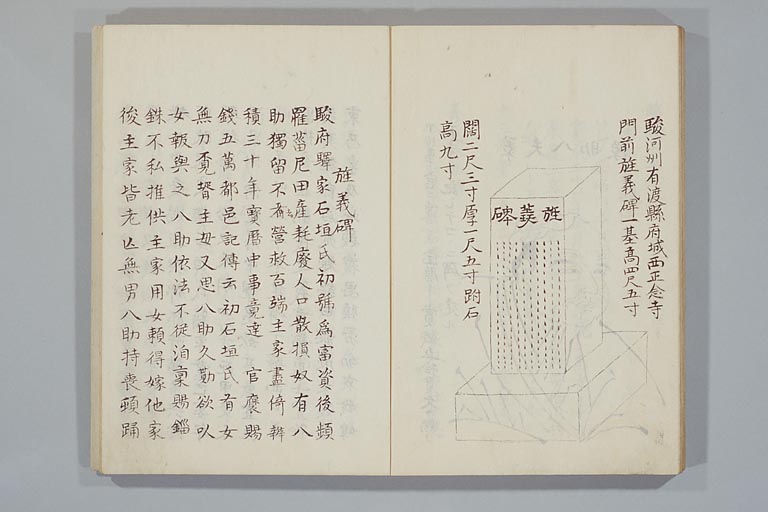 駿河州有渡縣府城西正念寺
門前旌義碑一基高四尺五寸
旌義碑
闊二尺三寸厚一尺五寸趺石
高九寸
旌義碑
駿府驛家石垣氏初號爲富資後頻
罹菑厄田產耗廢人口散損奴有八
助獨留不去營救百端主家盡倚辨
積三十年寶曆中事竟達 官褒賜
錢五萬都邑記傳云初石垣氏有女
無力覔聟主母又思八助久勤欲以
女報與之八助依法不從洎稟賜錙
銖不私推供主家用女賴得嫁他家
後主家皆老亡無男八助持喪頓踊